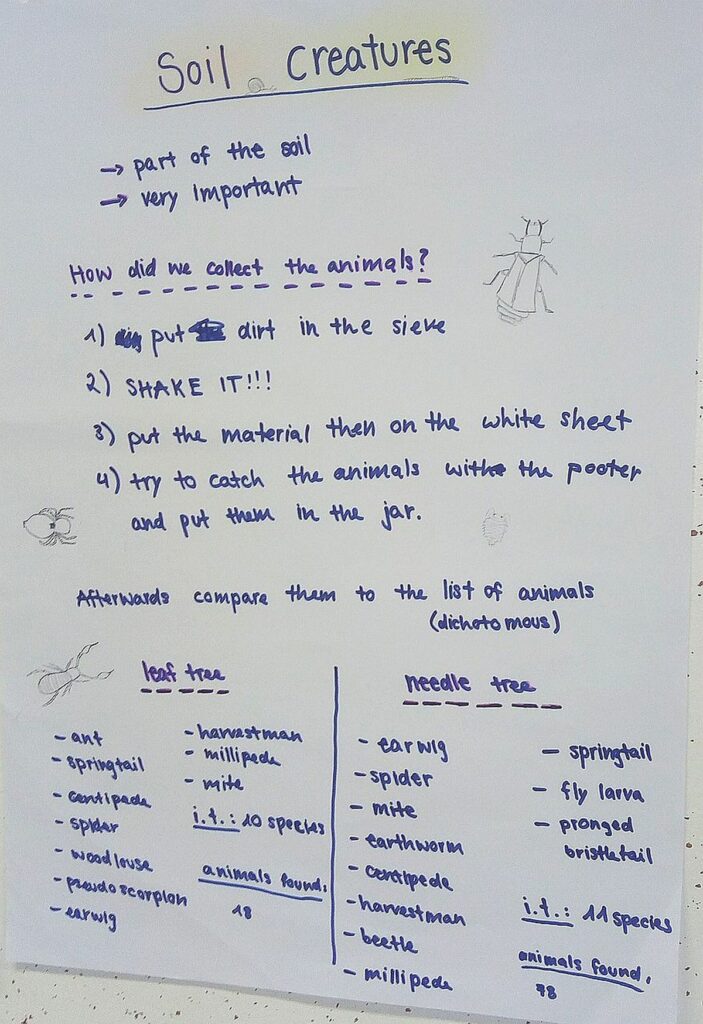 Soil Creatures
→ part of the soil
→ very important
How did we collect the animals?
1) put dirt in the sieve
2) SHAKE IT!!!
3) put the material then on the white sheet
4) try to catch the animals with the pooter
and put them in the jar.
Afterwards compare them to the list of animals
(dichotomous)
leaf tree
- ant
- springtail
- centipede
- spider
- woodlouse
- pseudoscorpion
- earwig
- harvestman
- millipede
- mite
i.t.: 10 species
animals found:
18
needle tree
- earwig
- spider
- mite
- earthworm
- centipede
- harvestman
- beetle
- millipede
- springtail
- fly larva
- pronged
bristletail
i.t.: 11 species
animals found:
78